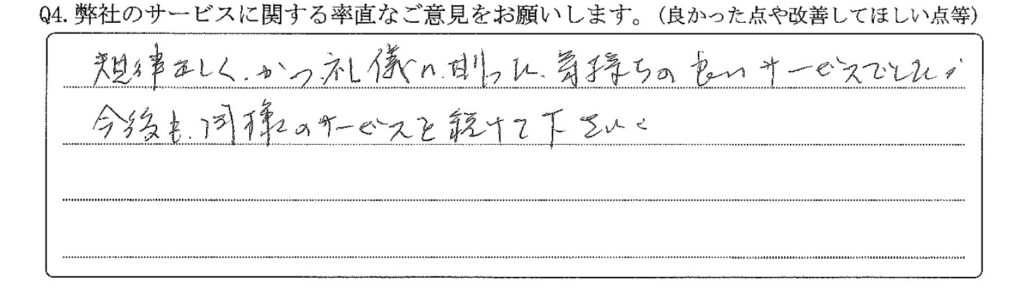 Q4. 弊社のサービスに関する率直なご意見をお願いします。(良かった点や改善してほしい点等)
規律正しく、かつ、礼儀に則った、気持ちの良いサービスでした。
今後も、同様のサービスを続けて下さい。